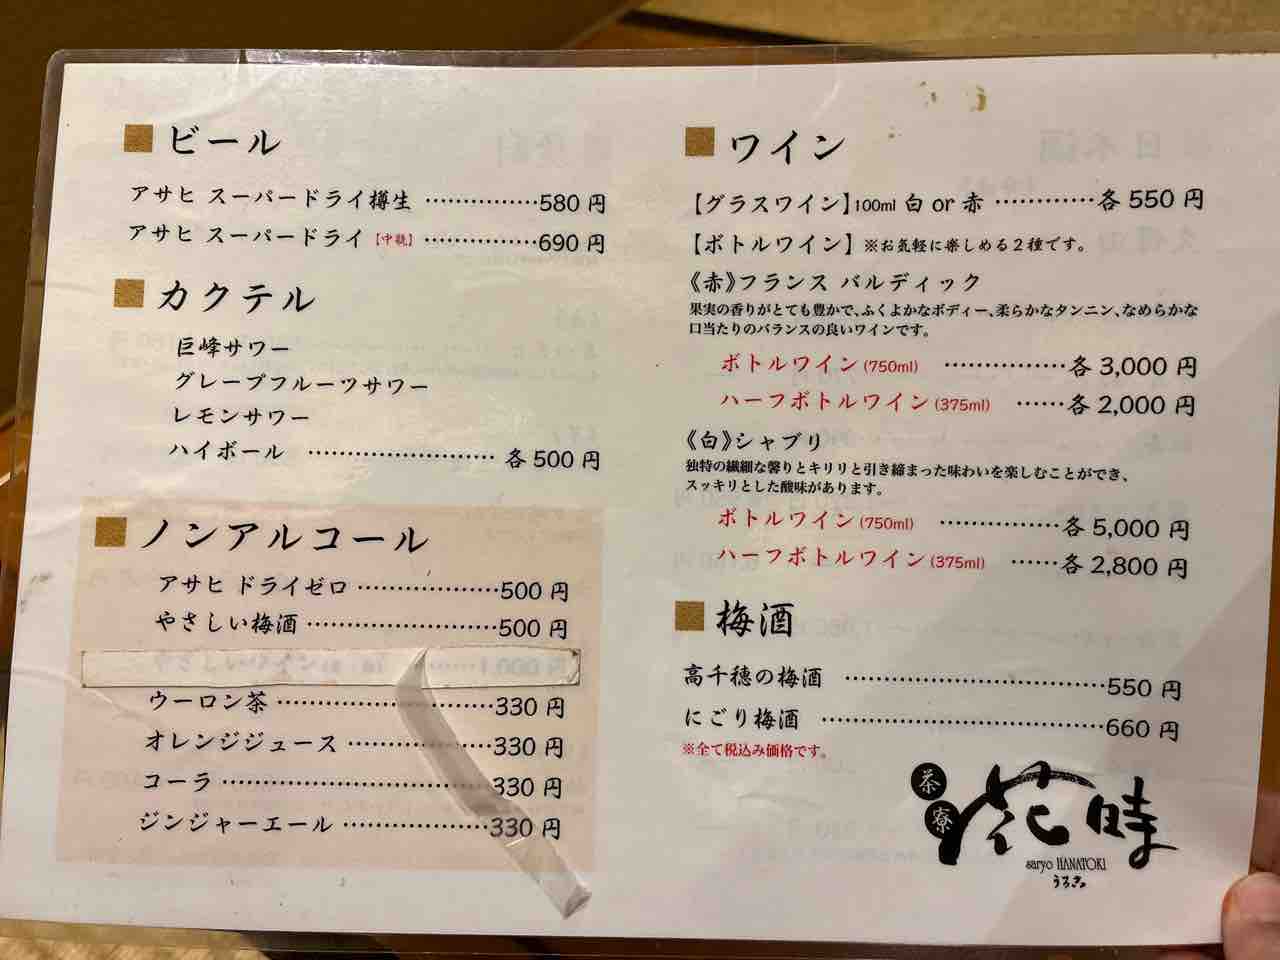 ビール
アサヒ スーパードライ樽生 ……………580円
アサヒ スーパードライ【中瓶】……………690円
カクテル
巨峰サワー
グレープフルーツサワー
レモンサワー
ハイボール ……………………各500円
ノンアルコール
アサヒ ドライゼロ………………500円
やさしい梅酒……………………500円
ウーロン茶………………………330円
オレンジジュース………………330円
コーラ……………………………330円
ジンジャーエール………………330円
ワイン
【グラスワイン】100ml 白 or 赤 …………各550円
【ボトルワイン】※お気軽に楽しめる2種です。
《赤》フランス バルディック
果実の香りがとても豊かで、ふくよかなボディー、柔らかなタンニン、なめらかな
口当たりのバランスの良いワインです。
ボトルワイン(750ml) ……………各3,000円
ハーフボトルワイン(375ml) ……各2,000円
《白》シャブリ
独特の繊細な馨りとキリリと引き締まった味わいを楽しむことができ、
スッキリとした酸味があります。
ボトルワイン(750ml) ……………各5,000円
ハーフボトルワイン(375ml) ……各2,800円
梅酒
高千穂の梅酒 ……………………………550円
にごり梅酒 ………………………………660円
※全て税込み価格です。
茶寮 花時
saryo HANATOKI